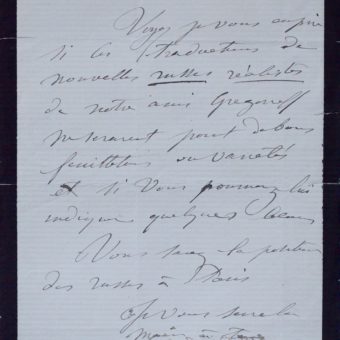 Voyez je vous en prie
si les traductions de
nouvelles russes réalistes
de notre ami
ne seraient point de bons
feuilletons ou variétés
et si vous pourriez lui
indiquer quelques
Vous savez la position
des russes à Paris
Je vous serre la
main